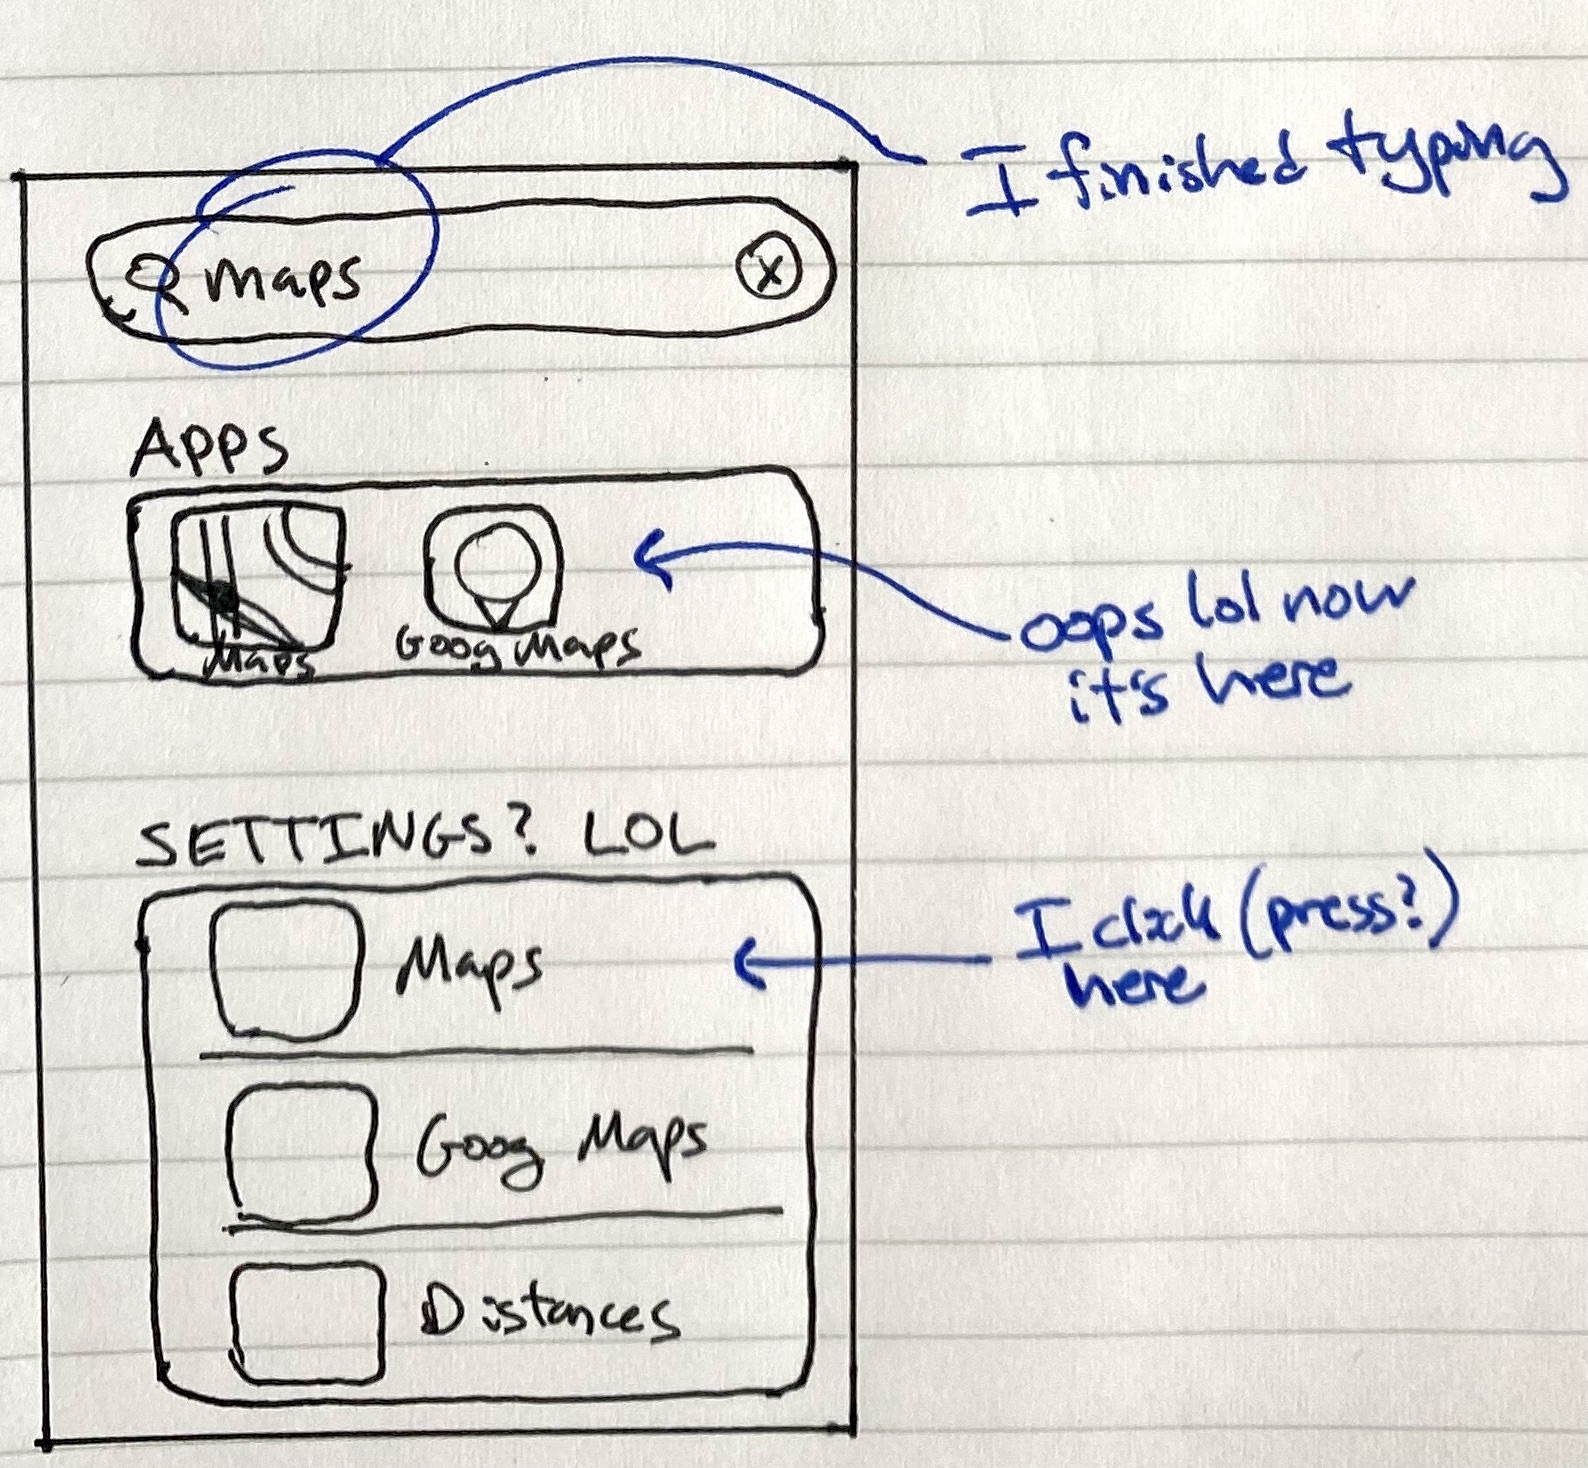 I finished typing
maps
X
APPS
Maps
Goog Maps
oops lol now
it's here
SETTINGS? LOL
Maps
I click (press?)
here
Goog Maps
Distances